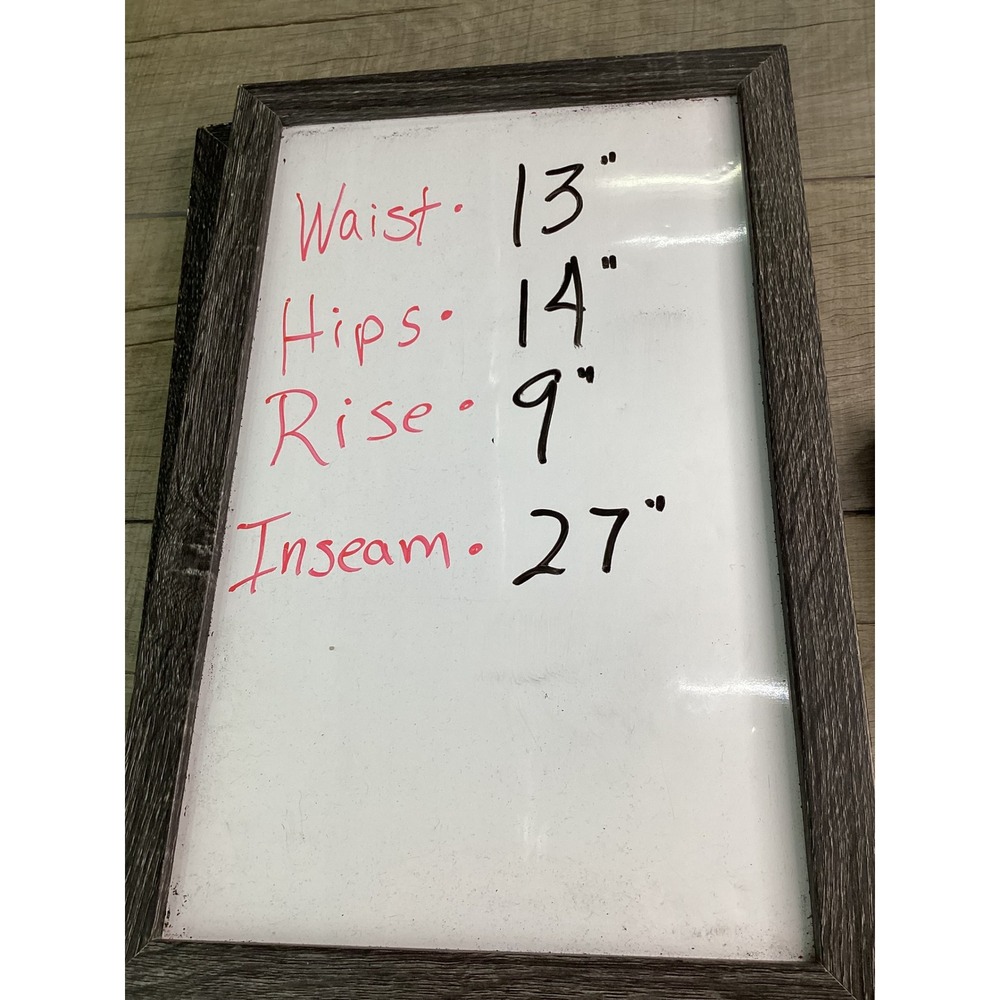 Waist · 13"
Hips · 14"
Rise · 9"
Inseam · 27"